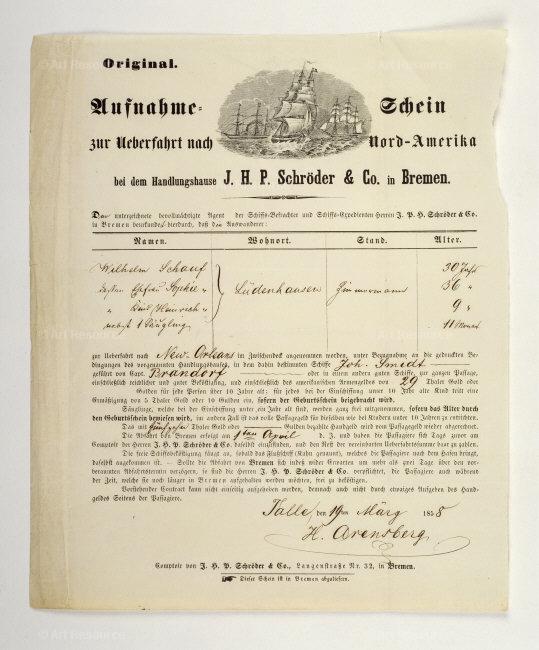 Original.
Aufnahme- Schein
zur Ueberfahrt nach Nord-Amerika
bei dem Handlungshause J. H. P. Schröder & Co. in Bremen.
Der unterzeichnete bevollmächtigte Agent der Schiffs-Befrachter und Schiffs-Expedienten Herren J. P. H. Schröder & Co.
in Bremen beurkundet hierdurch, daß der Auswanderer:
Namen. Wohnort. Stand. Alter.
Wilhelm Schauf 30 Jahr
dessen Ehefrau Sophie " Lüdenhausen Zimmermann 36 "
" Kind Heinrich " 9 "
nebst 1 Säugling 11 Monat
zur Ueberfahrt nach New Orleans im Zwischendeck angenommen worden, unter Bezugnahme an die gedruckten Be-
dingungen des vorgenannten Handlungshauses, in dem dahin bestimmten Schiffe Joh. Smidt
geführt von Capt. Brandorf oder in einem andern guten Schiffe, zur ganzen Passage,
einschließlich reichlicher und guter Beköstigung, und einschließlich des amerikanischen Armengeldes von 29 Thaler Gold oder
Gulden für jede Person über 10 Jahr alt; für jedes bei der Einschiffung unter 10 Jahr alte Kind tritt eine
Ermäßigung von 5 Thaler Gold oder 10 Gulden ein, sofern der Geburtsschein beigebracht wird.
Säuglinge, welche bei der Einschiffung unter ein Jahr alt sind, werden ganz frei mitgenommen, sofern das Alter durch
den Geburtsschein bewiesen wird, im andern Fall ist das volle Passagegeld für dieselben wie bei Kindern unter 10 Jahren zu entrichten.
Das mit fünfzehn Thaler Gold oder Gulden bezahlte Handgeld wird dem Passagegeld wieder abgerechnet.
Die Abfahrt von Bremen erfolgt am 1ten April d. J. und haben die Passagiere sich Tags zuvor am
Comptoir der Herren J. H. P. Schröder & Co. daselbst einzufinden, und den Rest der vereinbarten Ueberfahrtssumme baar zu zahlen.
Die freie Schiffsbeköstigung fängt an, sobald das Flußschiff (Kahn genannt), welches die Passagiere nach dem Hafen bringt,
daselbst angekommen ist. – Sollte die Abfahrt von Bremen sich indeß wider Erwarten um mehr als zwei Tage über den vor-
bestimmten Abfahrtstermin verzögern, so sind die Herren J. H. P. Schröder & Co. verpflichtet, die Passagiere auch während
der Zeit, welche sie noch länger in Bremen aufgehalten werden möchten, frei zu beköstigen.
Vorstehender Contract kann nicht einseitig aufgehoben werden, demnach auch nicht durch etwaiges Aufgeben des Hand-
geldes Seitens der Passagiere.
Talle, den 19ten März 1858
H. Arensberg
Comptoir von J. H. P. Schröder & Co., Langenstraße Nr. 32, in Bremen.
Dieser Schein ist in Bremen abzuliefern.
© Art Resource